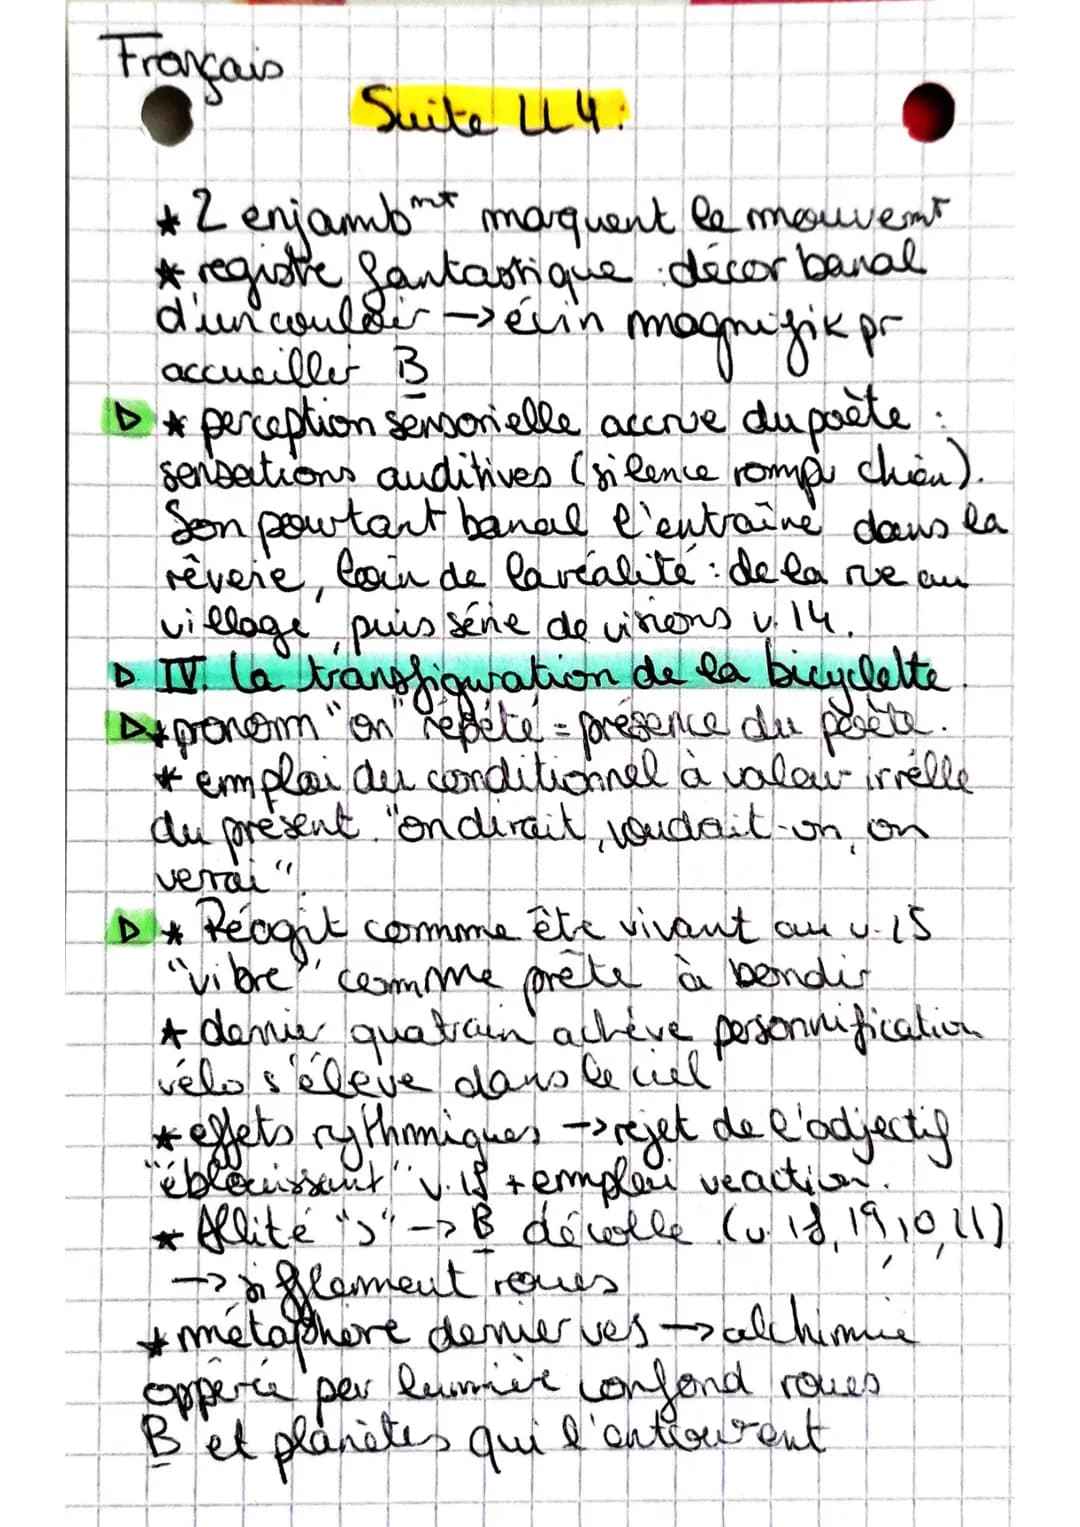 Français
Suite LL4:
* 2 enjambmt marquent le mouvemt
* registre fantastique : décor banal
d'un couloir → écrin magnifik pr
accueillir B
▷ * perception sensorielle accrue du poète :
sensations auditives (silence rompu chien).
Son pourtant banal l'entraîne dans la
rêverie, loin de la réalité : de la rue au
village, puis série de visions v. 14.
▷ IV. La transfiguration de la bicyclette.
▷ * pronom "on" répété = présence du poète.
* emploi du conditionnel à valeur irrélle
du présent. "on dirait, voudrait-on, on
verrai"
▷ * Réagit comme être vivant au v. 15
"vibre", comme prête à bondir
* dernier quatrain achève personnification
vélo s'élève dans le ciel
* effets rythmiques → rejet de l'adjectif
"éblouissant" v. 18 + emploi veaction.
* Allité "s" → B décolle (v. 18, 19, 10, 11)
→ sifflement roues
* métaphore dernier ves → alchimie
opperée par lumière confond roues
B et planètes qui l'entourent